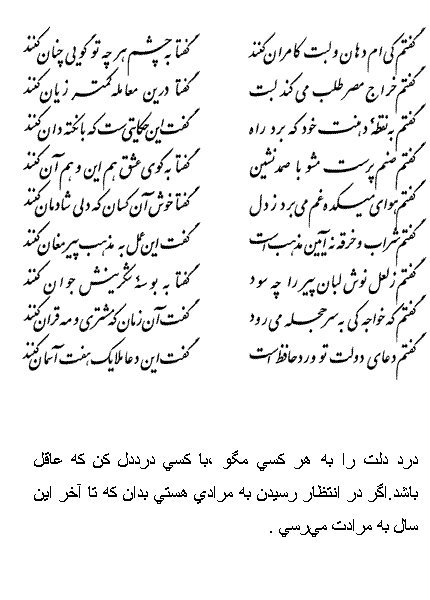 گفتم کی ام دهان و لبت کامران کنند گفتا به چشم هر چه تو گویی چنان کنند
گفتم خراج مصر طلب می کند لبت گفتا درین معامله کمتر زیان کنند
گفتم به نقطهٔ دهنت خود که برد راه گفت این حکایتی است که با نکته دان کنند
گفتم صنم پرست مشو با صمد نشین گفتا به کوی عشق هم این و هم آن کنند
گفتم هوای میکده غم می برد ز دل گفتا خوش آن کسان که دلی شادمان کنند
گفتم شراب و خرقه نه آیین مذهب است گفت این عمل به مذهب پیر مغان کنند
گفتم ز لعل نوش لبان پیر را چه سود گفتا به بوسهٔ شکرینش جوان کنند
گفتم که خواجه کی به سر حجله می رود گفت آن زمان که مشتری و مه قران کنند
گفتم دعای دولت تو ورد حافظ است گفت این دعا ملایک هفت آسمان کنند
درد دلت را به هر كسي مگو ،با كسي درددل كن كه عاقل
باشد.اگر در انتظار رسيدن به مرادي هستي بدان كه تا آخر اين
سال به مرادت مي‌رسي .